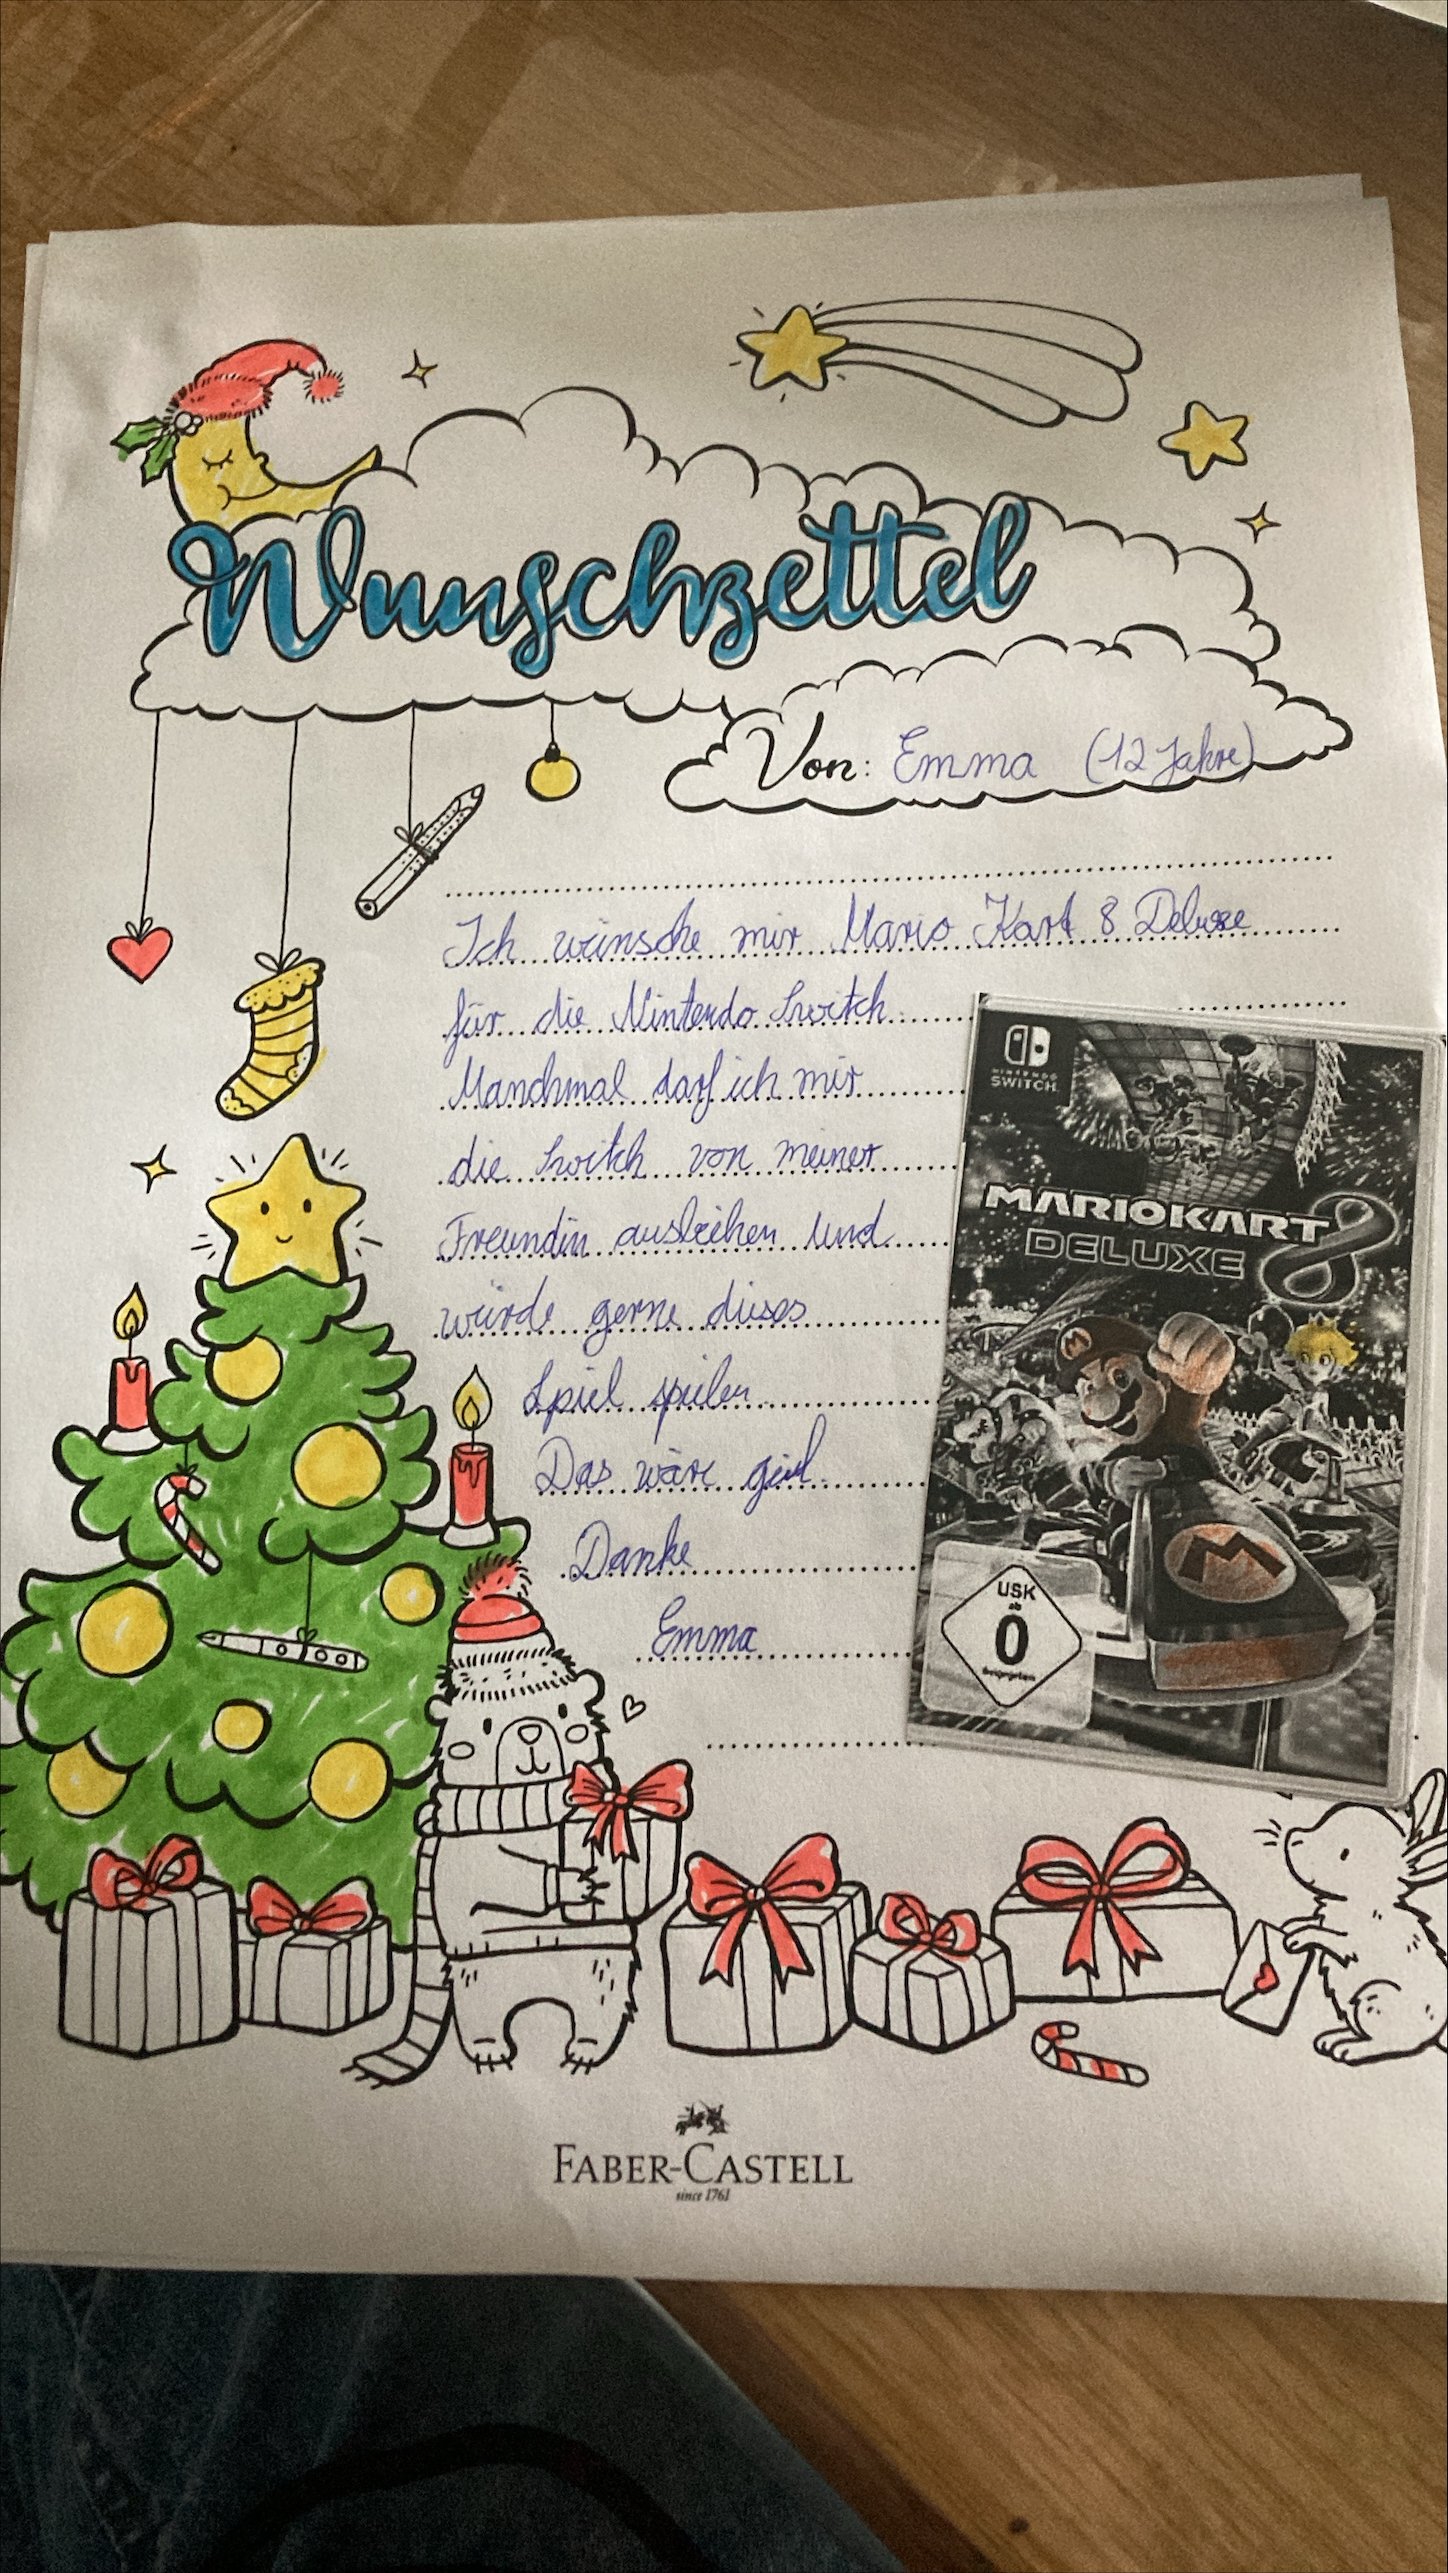 Wunschzettel
Von: Emma (12 Jahre)
Ich wünsche mir Mario Kart 8 Deluxe
für die Nintendo Switch.
Manchmal darf ich mir
die Switch von meiner
Freundin ausleihen und
würde gerne dieses
Spiel spielen.
Das wäre geil.
Danke
Emma
NINTENDO
SWITCH
MARIOKART 8
DELUXE
M
USK
ab
0
freigegeben
M
FABER-CASTELL
since 1761